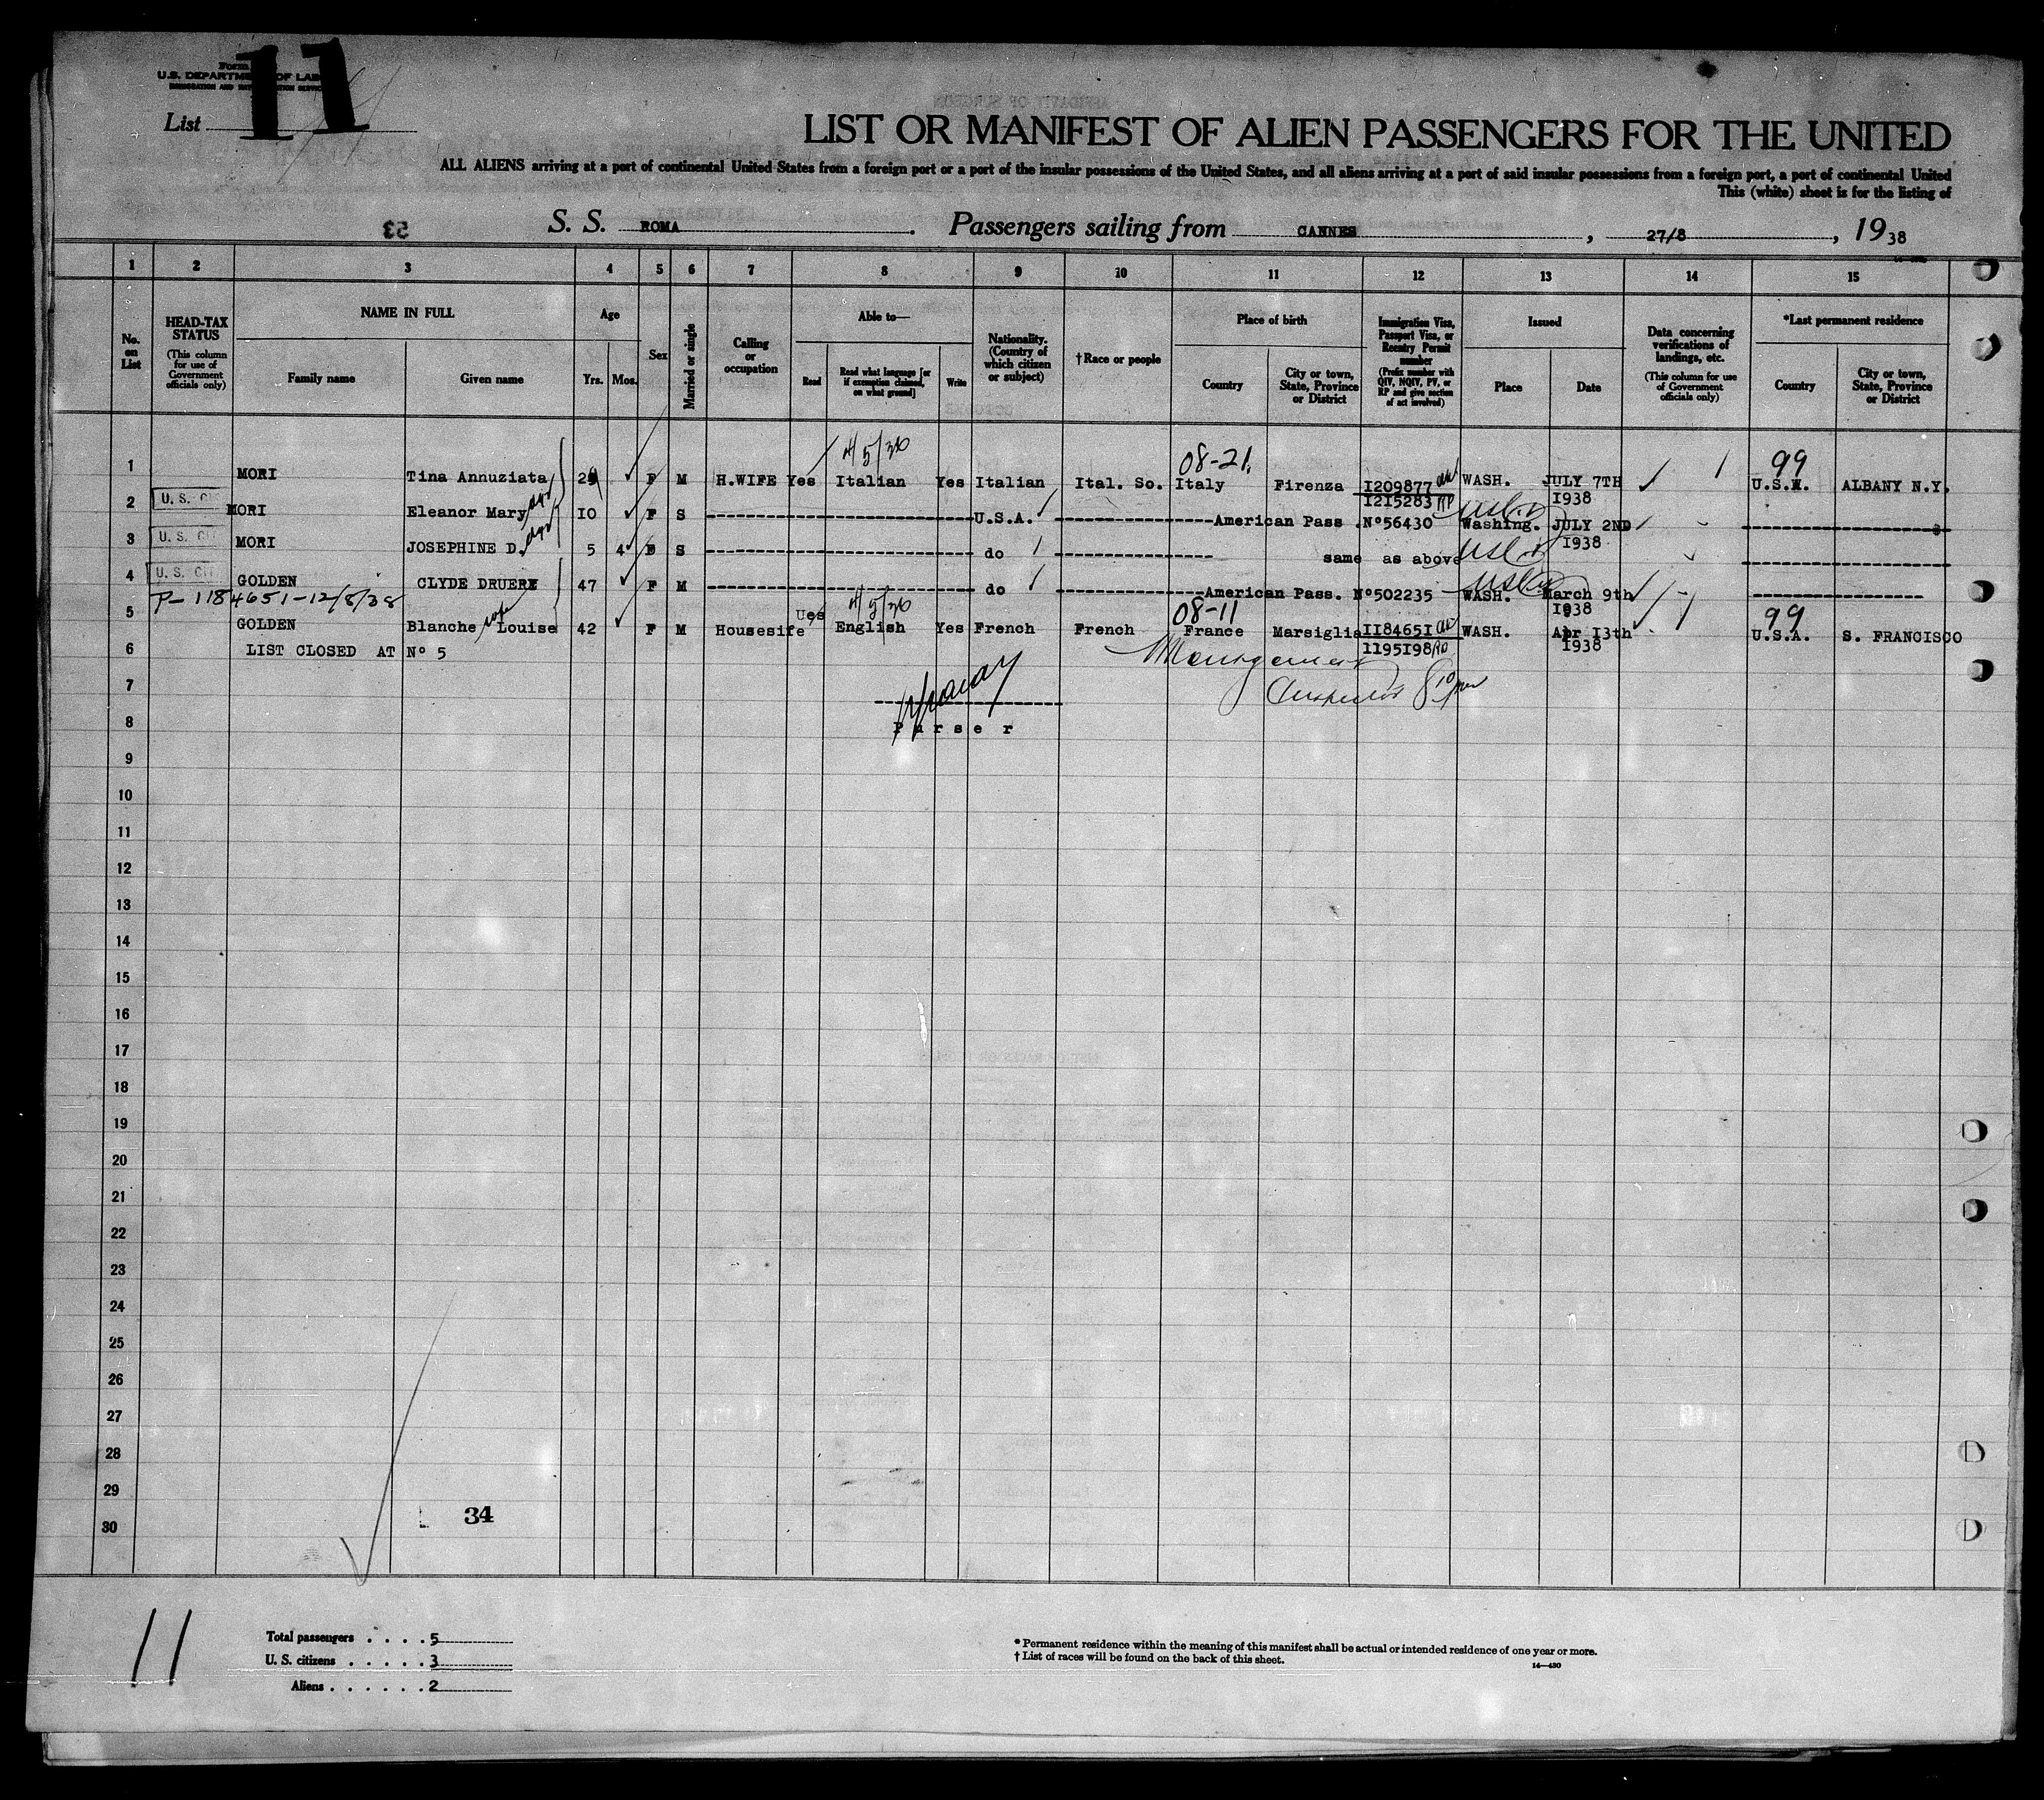 11
Form
U.S. DEPARTMENT OF LABOR
IMMIGRATION AND NATURALIZATION SERVICE
List
LIST OR MANIFEST OF ALIEN PASSENGERS FOR THE UNITED
ALL ALIENS arriving at a port of continental United States from a foreign port or a port of the insular possessions of the United States, and all aliens arriving at a port of said insular possessions from a foreign port, a port of continental United
This (white) sheet is for the listing of
53
S. S. ROMA. Passengers sailing from CANNES, 27/8, 1938
1 2 3 4 5 6 7 8 9 10 11 12 13 14 15
No. on List
HEAD-TAX STATUS (This column for use of Government officials only)
NAME IN FULL
Family name Given name
Age
Yrs. Mos.
Sex
Married or single
Calling or occupation
Able to—
Read Read what language [or if exemption claimed, on what ground] Write
Nationality. (Country of which citizen or subject)
†Race or people
Place of birth
Country City or town, State, Province or District
Immigration Visa, Passport Visa, or Reentry Permit number (Prefix number with QIV, NQIV, PV, or RP and give section of act involved)
Issued
Place Date
Data concerning verifications of landings, etc. (This column for use of Government officials only)
*Last permanent residence
Country City or town, State, Province or District
4/5/30 08-21. 99
1 MORI Tina Annuziata 29 F M H.WIFE Yes Italian Yes Italian Ital. So. Italy Firenza I209877 WASH. JULY 7TH U.S.A. ALBANY N.Y.
I215283 I938
2 U. S. CIT MORI Eleanor Mary IO F S U.S.A. American Pass .Nº56430 Washing. JULY 2ND
3 U. S. CIT MORI JOSEPHINE D. 5 4 F S do same as above I938
4 U. S. CIT GOLDEN CLYDE DRUERY 47 F M do American Pass. Nº502235 WASH. March 9th
P-1184651-12/8/38 I938
4/5/30 08-11 99
5 GOLDEN Blanche Louise 42 F M Housesife Ues English Yes French French France Marsiglia II8465I WASH. Apr I3th U.S.A. S. FRANCISCO
1195I98 I938
6 LIST CLOSED AT Nº 5
7
8 Purser
9
10
11
12
13
14
15
16
17
18
19
20
21
22
23
24
25
26
27
28
29
34
30
11
Total passengers . . . . 5
U. S. citizens . . . . . 3
Aliens . . . . . . 2
* Permanent residence within the meaning of this manifest shall be actual or intended residence of one year or more.
† List of races will be found on the back of this sheet.
14—430